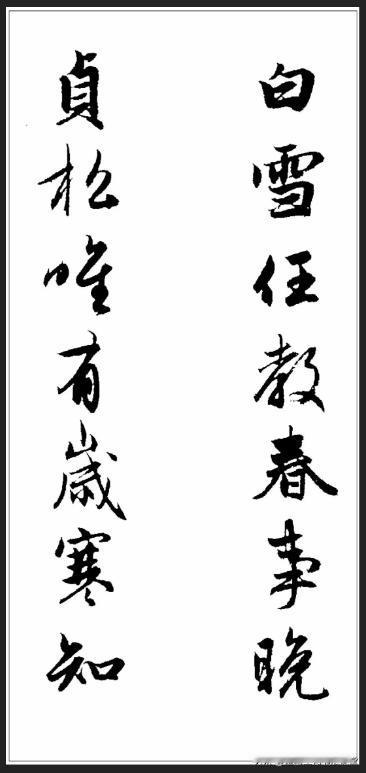 白雪任教春事晚
貞松唯有歲寒知